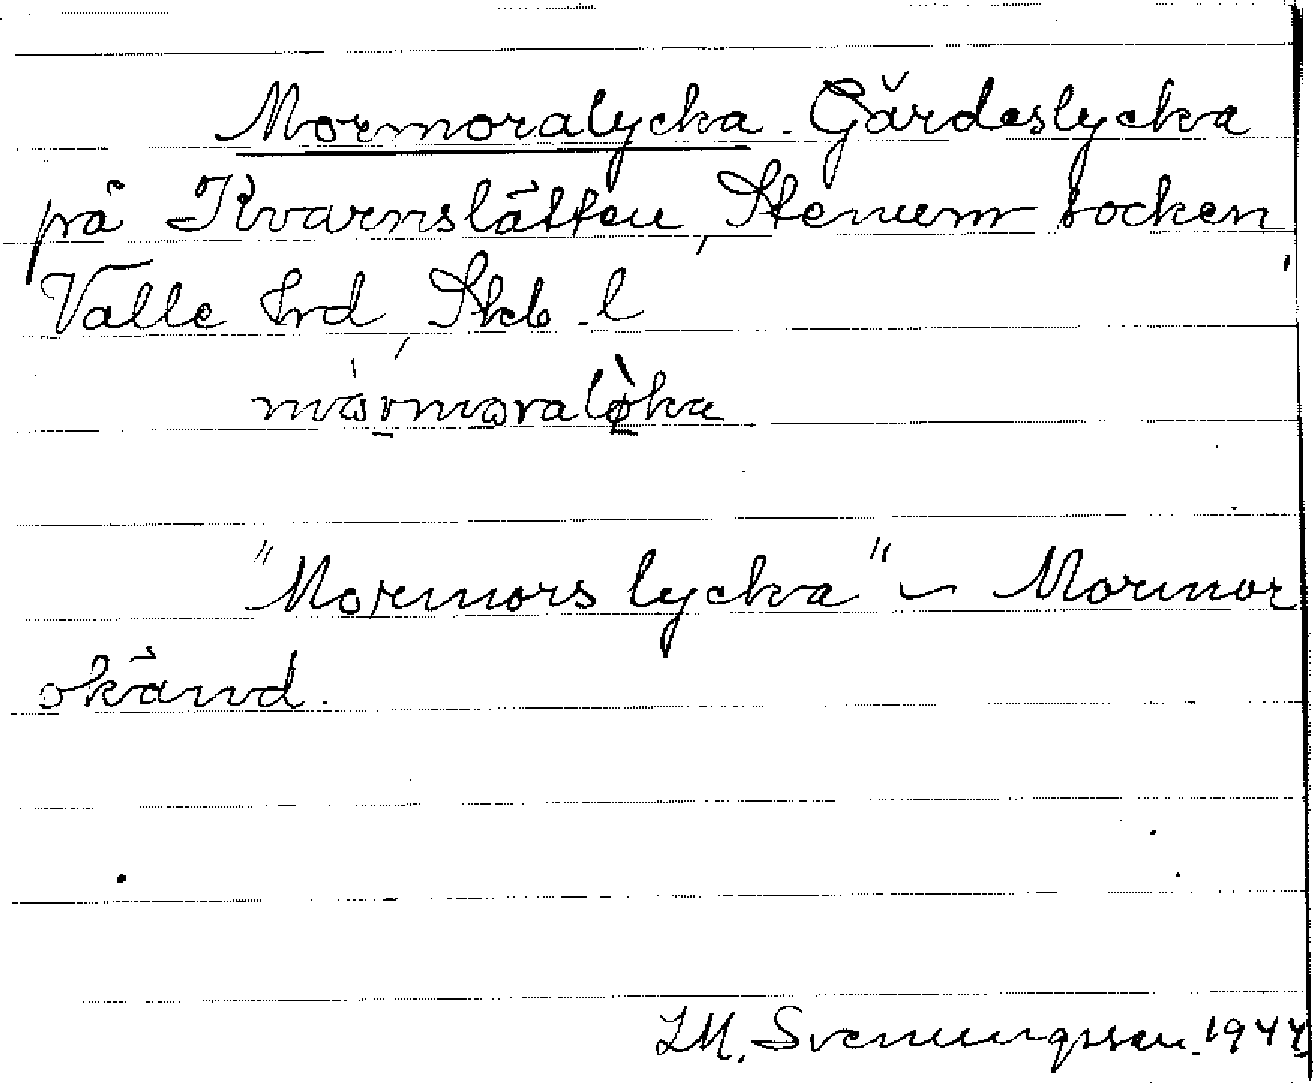 Mormoralycka. Gärdeslycka
på Kvarnslätten, Stenum socken,
Valle hrd, Skb. l
mòrmoraløka
"Mormors lycka" – Mormor
okänd.
I.M. Svenungsson. 1944